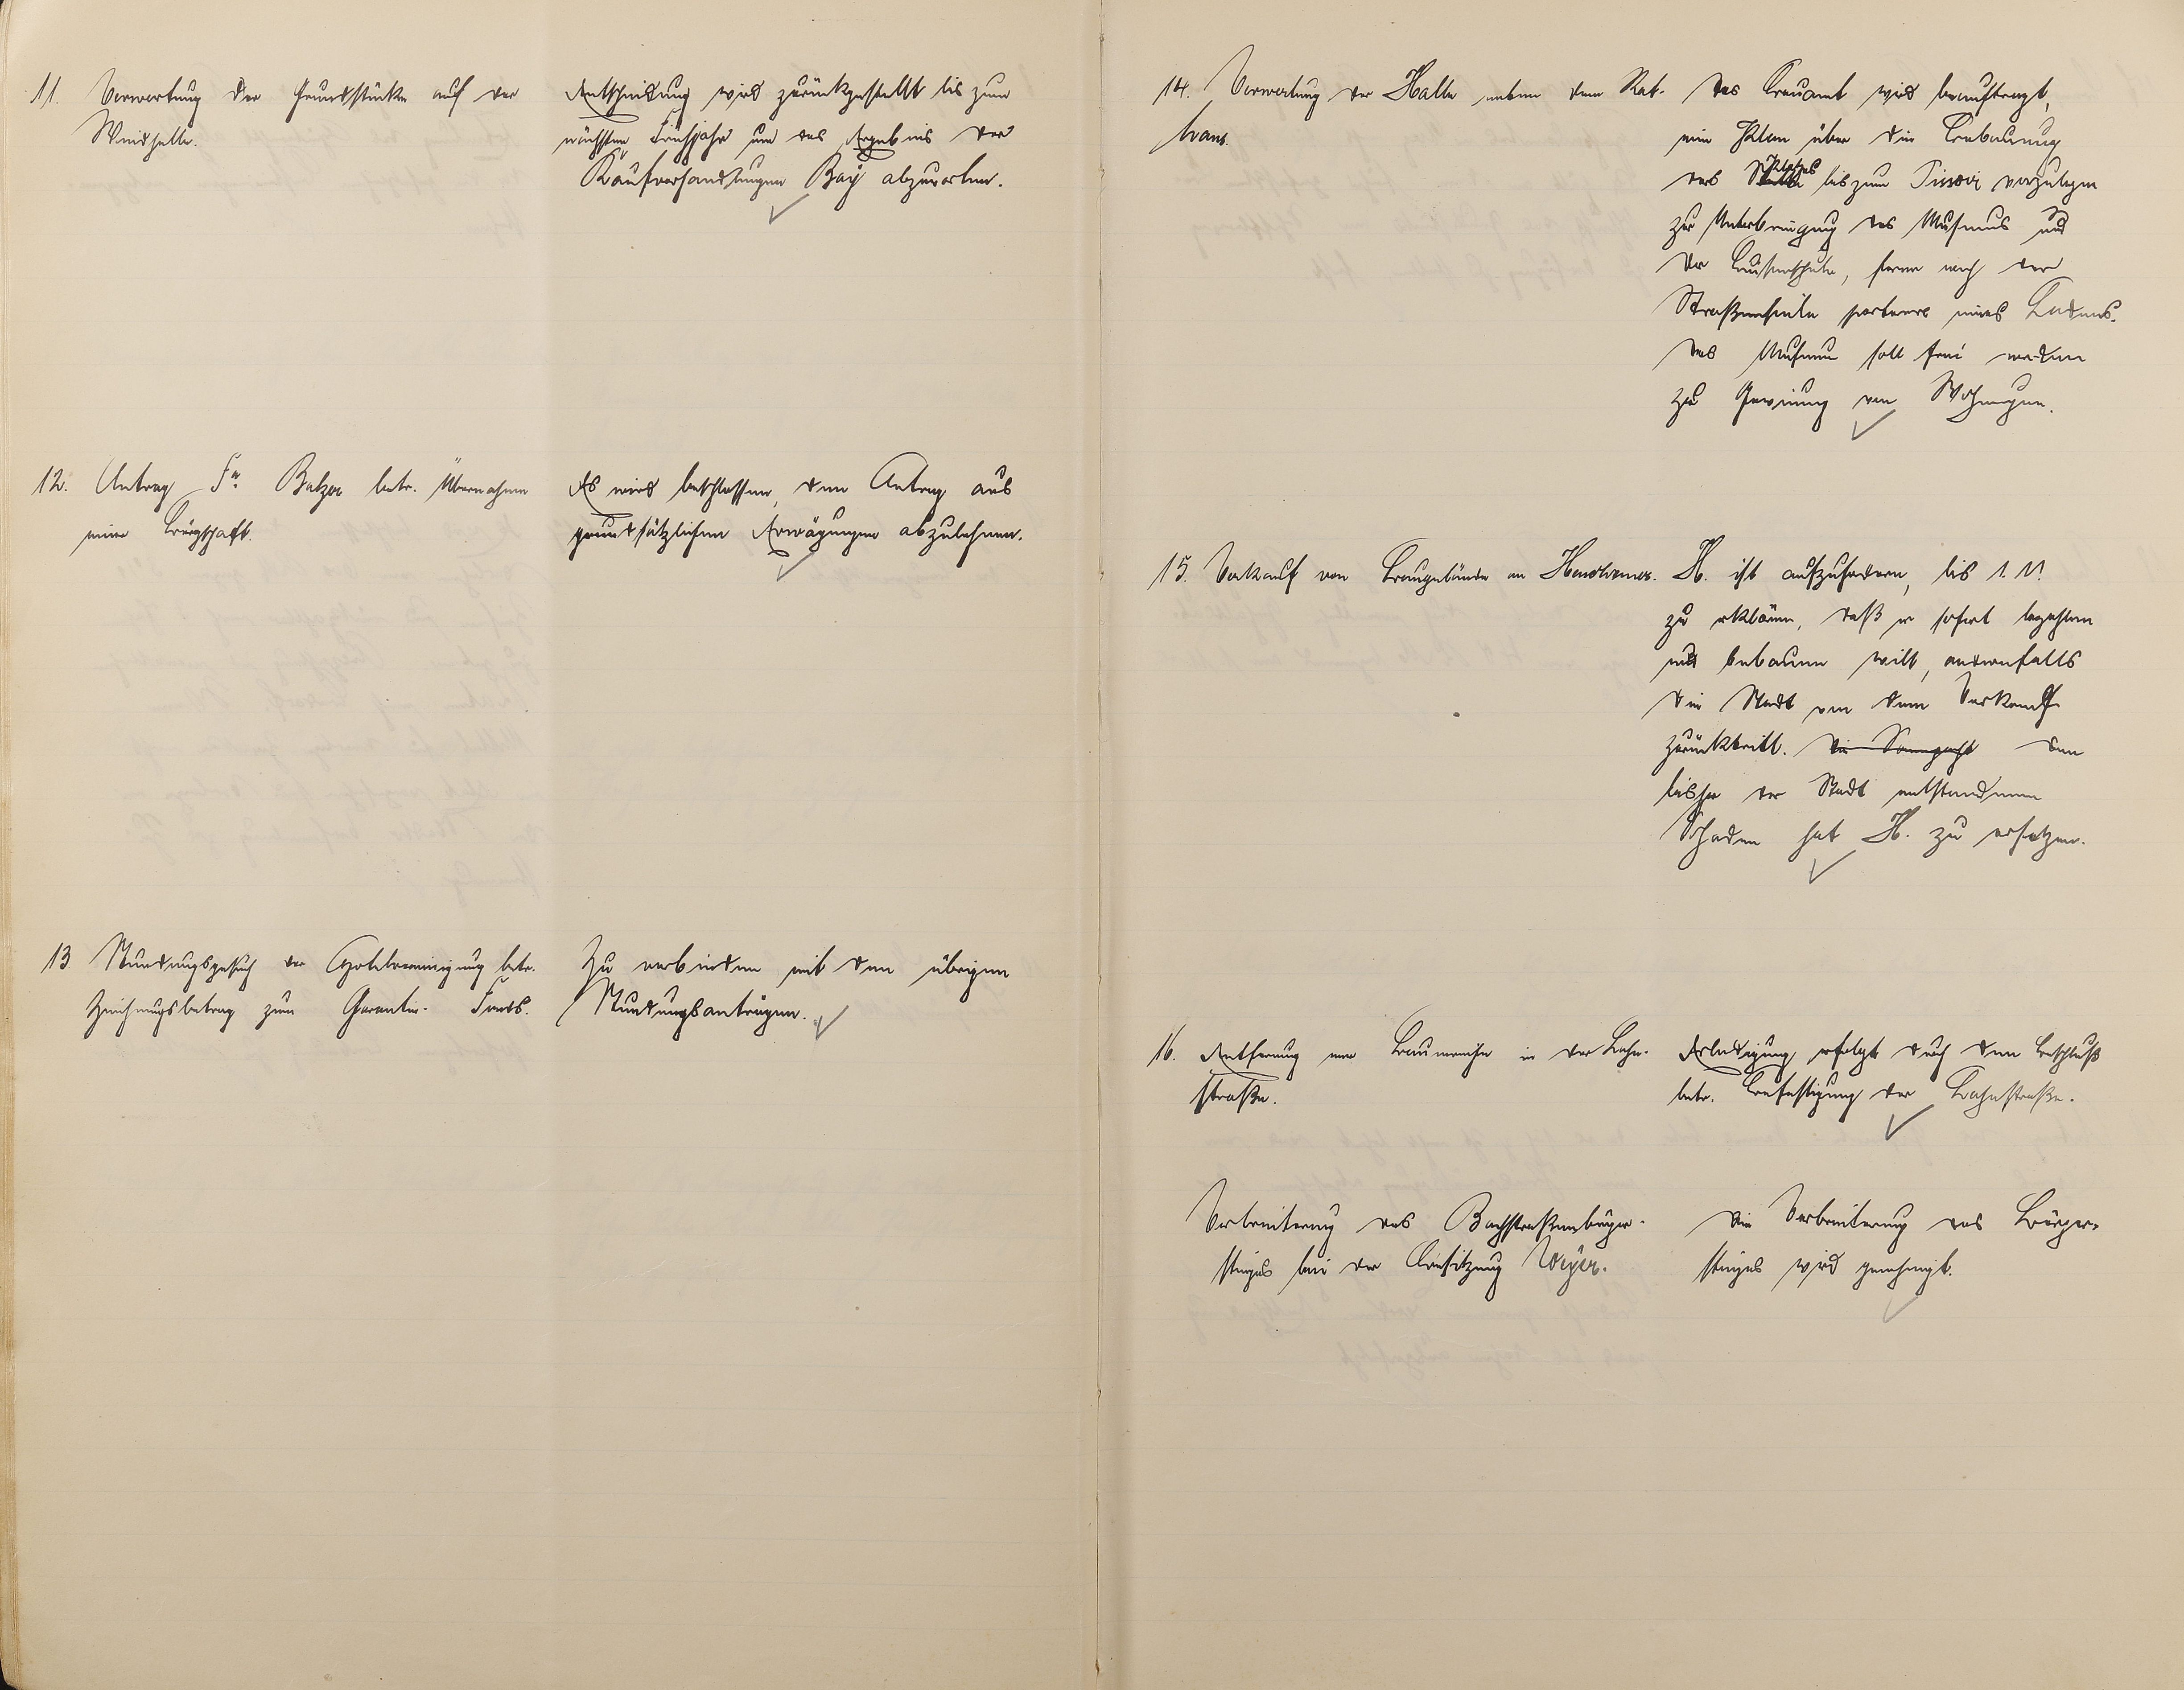 11. Verwertung der Grundstücke auf der
Weidhelle.
Entscheidung wird zurückgestellt bis zum
nächsten Frühjahr um das Ergebnis der
Kaufverhandlungen Bay abzuwarten.
12. Antrag Fa. Balzer betr. Übernahme
einer Bürgschaft.
Es wird beschlossen, den Antrag aus
grundsätzlichen Erwägungen abzulehnen.
13 Stundungsgesuch der Hotelvereinigung betr.
Zeichnungsbetrag zum Garantie-Fonds.
Zu verbinden mit den übrigen
Stundungsanträgen.
14. Verwertung der Halle neben dem Rat-
haus.
Das Bauamt wird beauftragt,
ein Plan über die Bebauung
des Platzes bis zum vorzulegen
zur Unterbringung des Museums und
der, ferner nach der
Straßenseite parterre eines Ladens.
Das Museum soll frei werden
zur Gewinnung von Wohnungen.
15. Verkauf von Baugelände an
H. ist aufzufordern, bis 1. VI.
zu erklären, daß er sofort bezahlen
und bebauen will, andernfalls
die Stadt von dem Verkauf
zurücktritt. Den
bisher der Stadt entstandenen
Schaden hat H. zu ersetzen.
16. Entfernung einer Baumreihe in der Bahn-
straße.
Erledigung erfolgt durch den Beschluß
betr. Befestigung der Bahnstraße.
Verbreiterung des Bachstraßenbürger-
steiges bei der Besitzung Weyer.
Die Verbreiterung des Bürger-
steiges wird genehmigt.